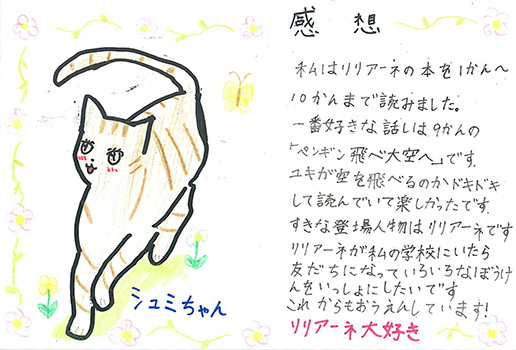 シュミちゃん
感想
私はリリアーネの本を1かん〜
10かんまで読みました。
一番好きな話しは9かんの
「ペンギン飛べ大空へ」です。
ユキが空を飛べるのかドキドキ
して読んでいて楽しかったです。
すきな登場人物はリリアーネです
リリアーネが私の学校にいたら
友だちになっていろいろなぼうけ
んをいっしょにしたいです
これからもおうえんしています!
リリアーネ大好き